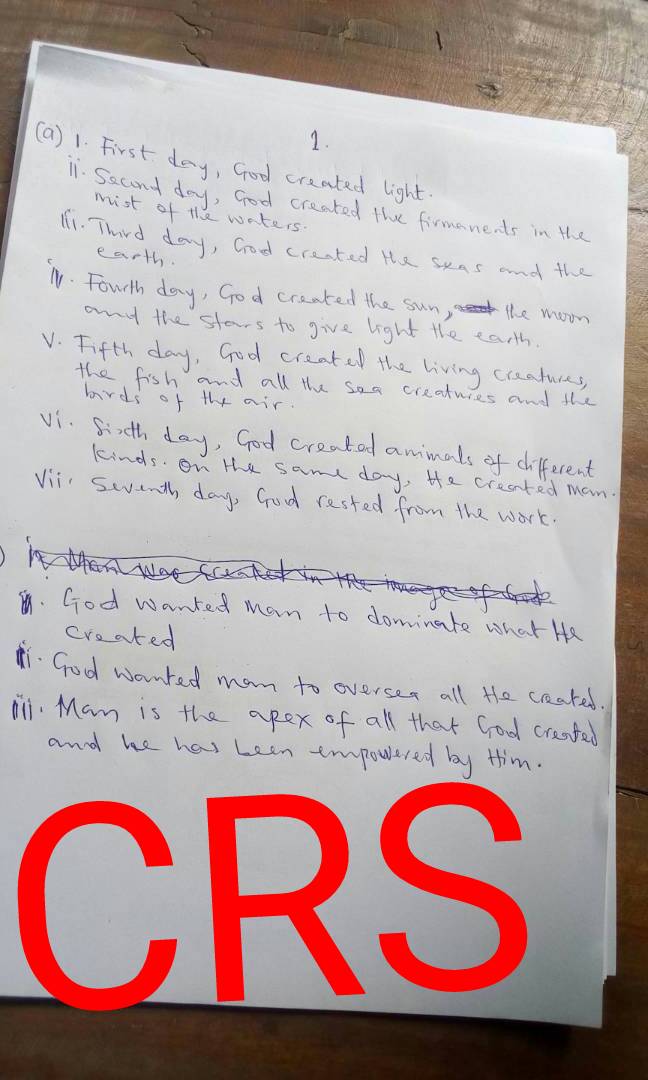 1.
(a) i. First day, God created light.
ii. Second day, God created the firmaments in the
mist of the waters.
iii. Third day, God created the seas and the
earth.
iv. Fourth day, God created the sun, the moon
and the stars to give light the earth.
v. Fifth day, God created the living creatures,
the fish and all the sea creatures and the
birds of the air.
vi. Sixth day, God created animals of different
kinds. On the same day, He created man.
vii. Seventh day, God rested from the work.
) Man was created in the image of God
i. God wanted man to dominate what He
created
ii. God wanted man to oversea all He created.
iii. Man is the apex of all that God created
and he has been empowered by Him.
CRS